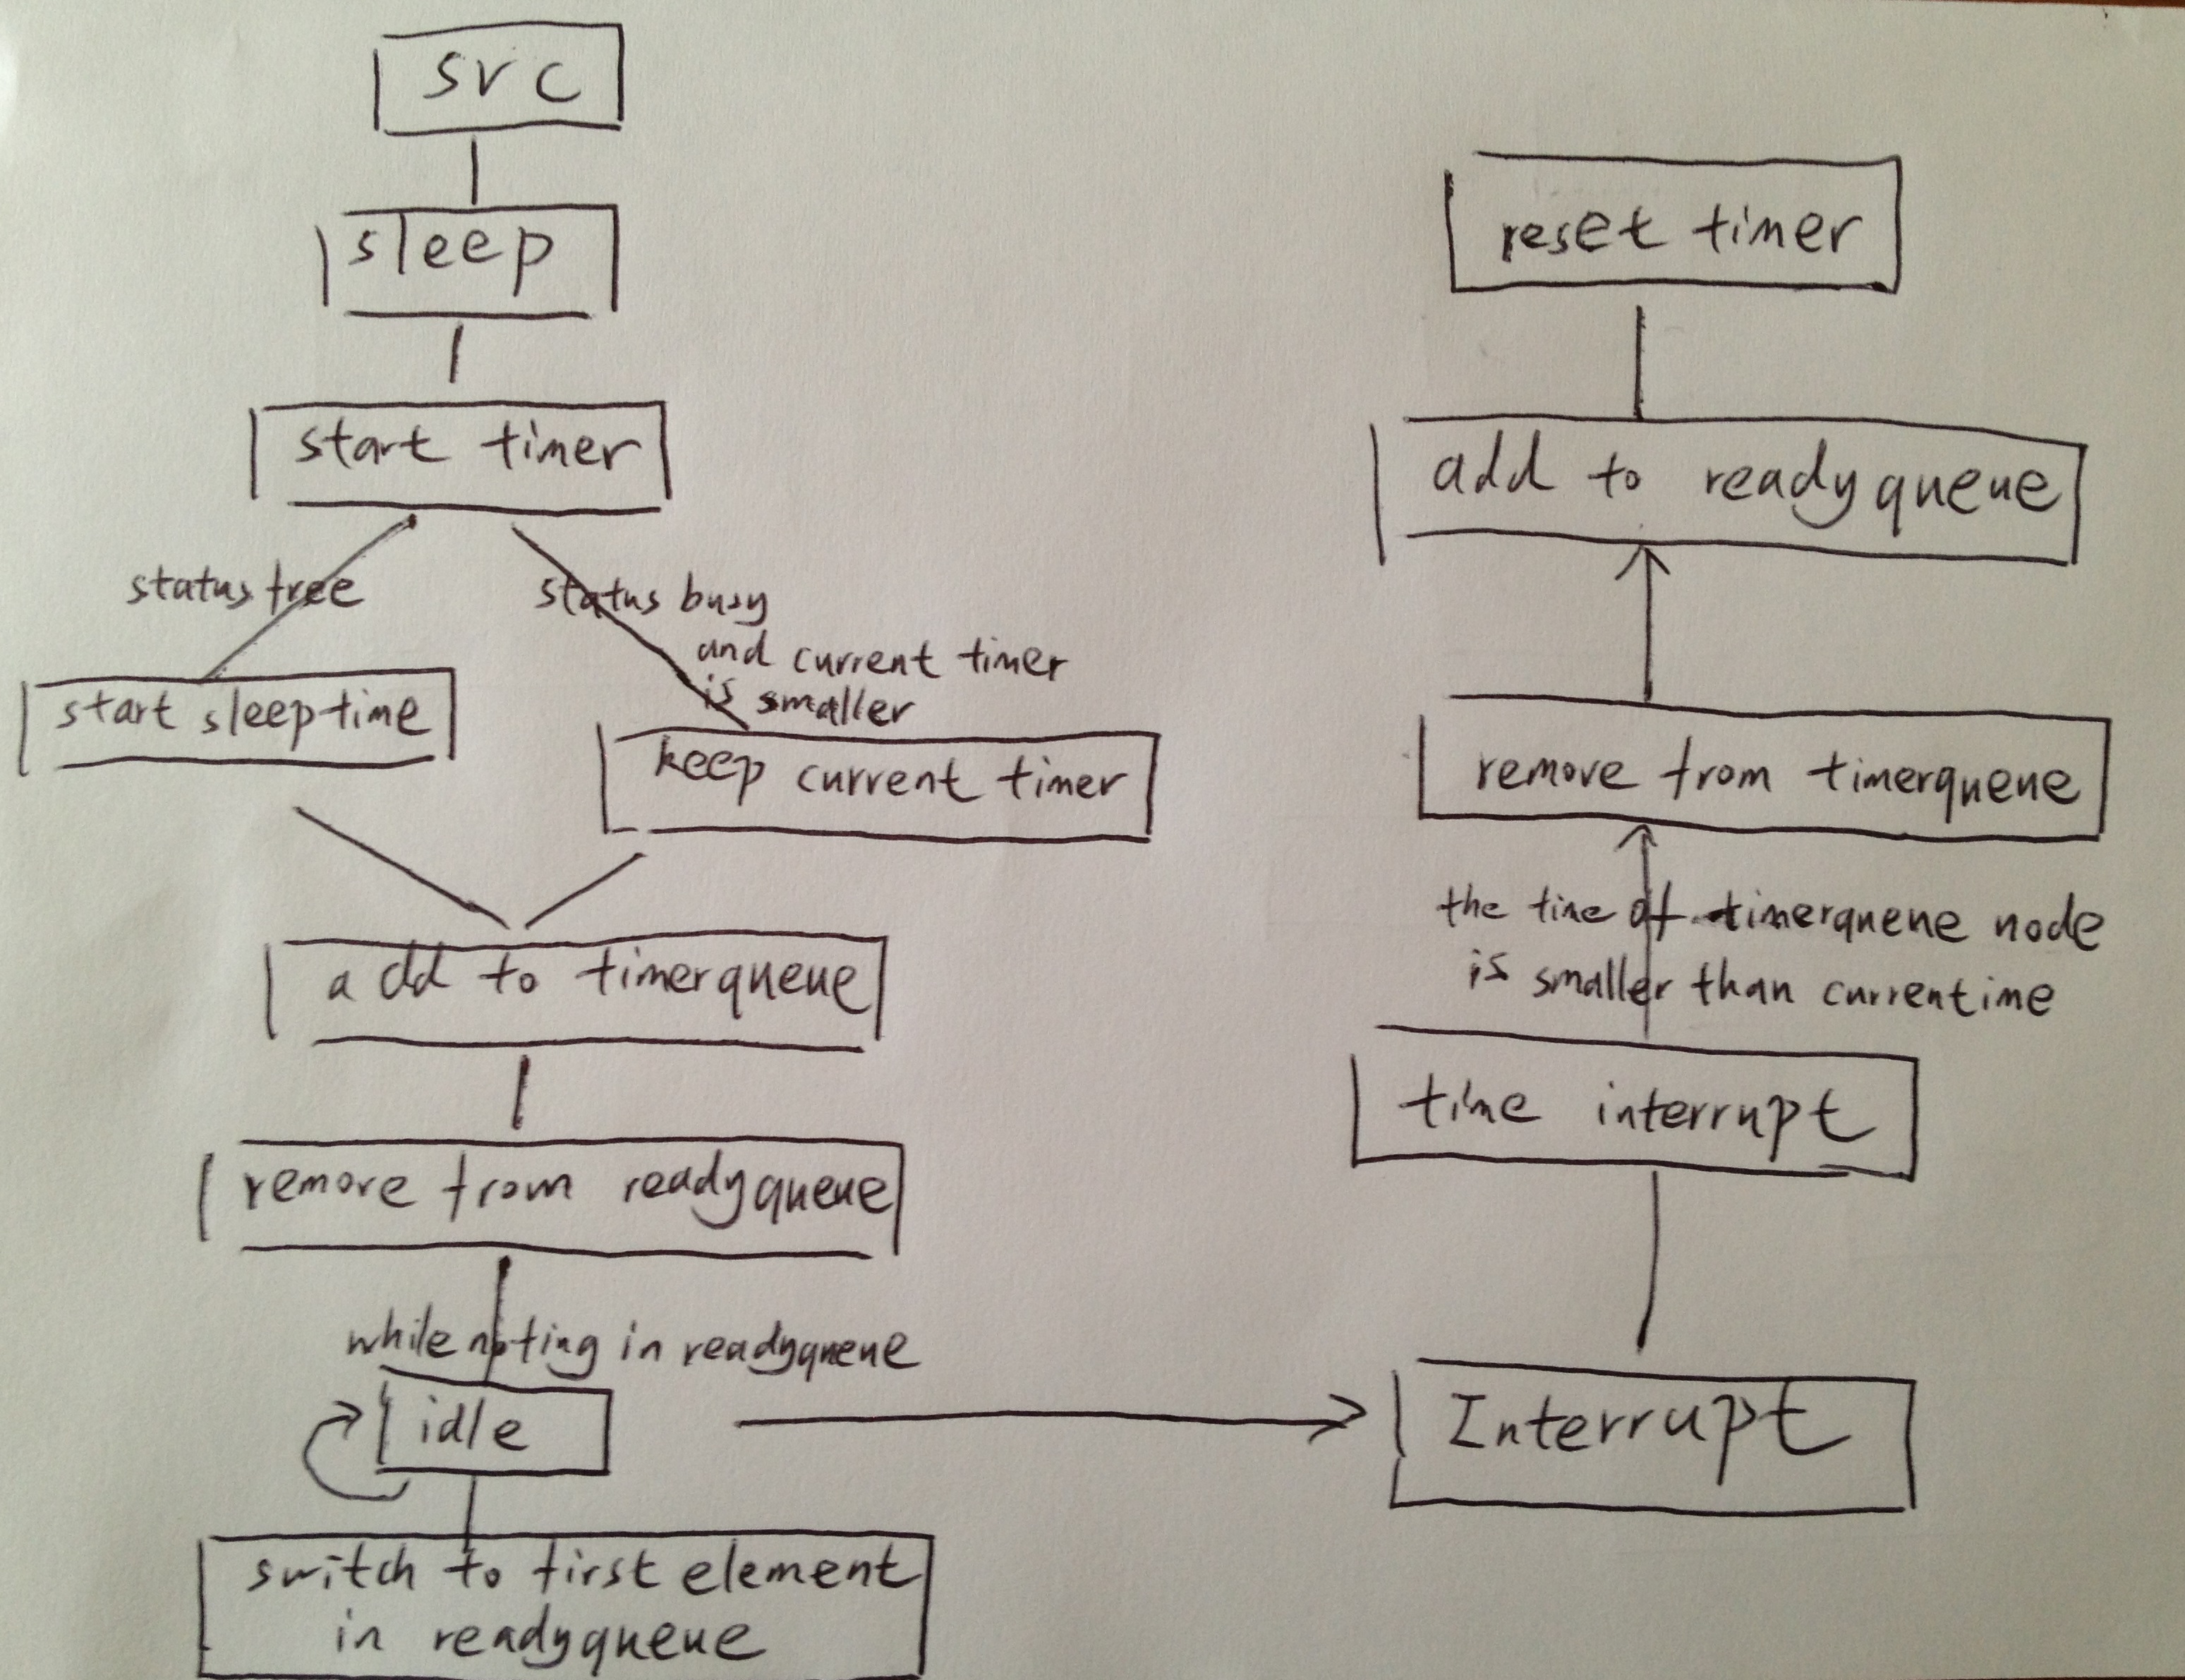 svc
sleep
start timer
status free
status busy
and current timer
is smaller
start sleeptime
keep current timer
add to timerqueue
remove from readyqueue
while noting in readyqueue
idle
switch to first element
in readyqueue
reset timer
add to readyqueue
remove from timerqueue
the time of timerqueue node
is smaller than currentime
time interrupt
Interrupt